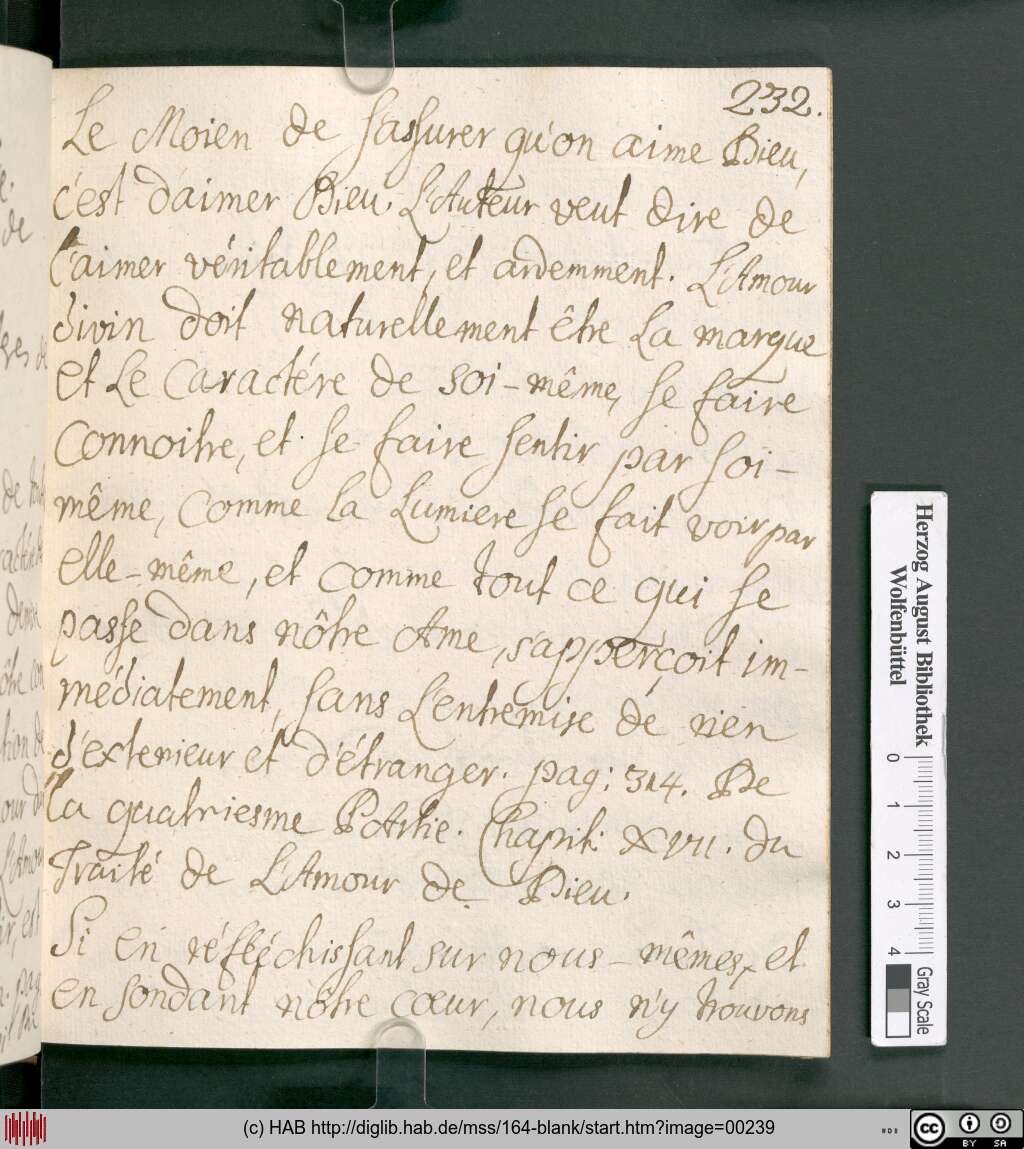 232.
Le Moien de s'assurer qu'on aime Dieu,
c'est d'aimer Dieu. L'Auteur veut dire de
l'aimer véritablement, et ardemment. L'Amour
divin doit naturellement être la marque
et le Caractére de soi-même, se faire
connoitre, et se faire sentir par soi-
même, comme la Lumiere se fait voir par
elle-même, et comme tout ce qui se
passe dans nôtre Ame, s'apperçoit im-
médiatement, sans l'entremise de rien
d'exterieur et d'étranger. pag: 314. De
la quatriesme PArtie. Chapit: XVII. du
Traité de L'Amour de Dieu.
Si en réfléchissant sur nous-mêmes, et
en sondant nôtre cœur, nous n'y trouvons
Herzog August Bibliothek
Wolfenbüttel
0 1 2 3 4
Gray Scale
(c) HAB http://diglib.hab.de/mss/164-blank/start.htm?image=00239
cc BY SA